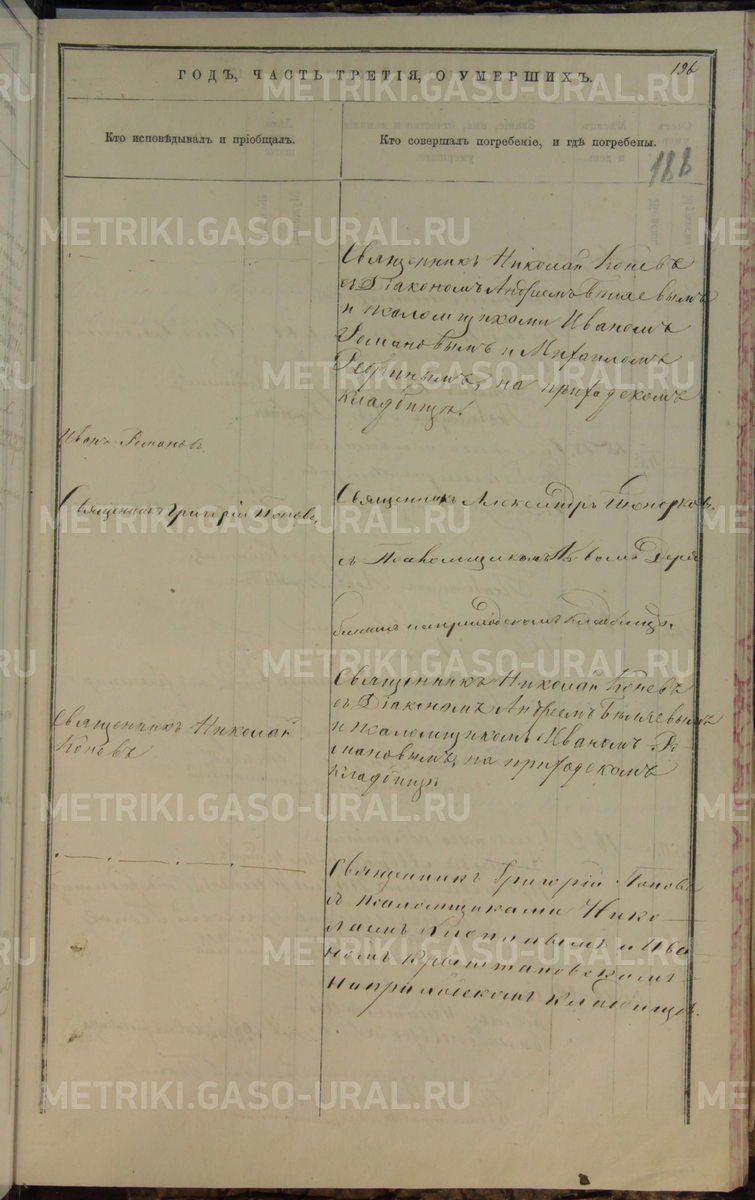 196
ГОДЪ, ЧАСТЬ ТРЕТІЯ, О УМЕРШИХЪ.
Кто исповѣдывалъ и пріобщалъ.
Кто совершалъ погребеніе, и гдѣ погребены.
188
Священникъ Николай Коневъ
съ Діакономъ Андреемъ Бѣляевымъ
и псаломщиками Иваномъ
Романовымъ и Михаиломъ
на приходскомъ
кладбищѣ.
Иванъ Романовъ.
Священникъ Григорій Поповъ.
Священникъ Александръ Топорковъ.
съ Псаломщикомъ Львомъ Деря
бинымъ на приходскомъ кладбищѣ.
Священникъ Николай
Коневъ
Священникъ Николай Коневъ
съ Діакономъ Андреемъ Бѣляевымъ
и псаломщикомъ Иваномъ Ро
мановымъ, на приходскомъ
кладбищѣ
Священникъ Григорій Поповъ
съ псаломщиками Нико
лаемъ и Ива
номъ Крыштановскимъ
на приходскомъ кладбищѣ.
METRIKI.GASO-URAL.RU